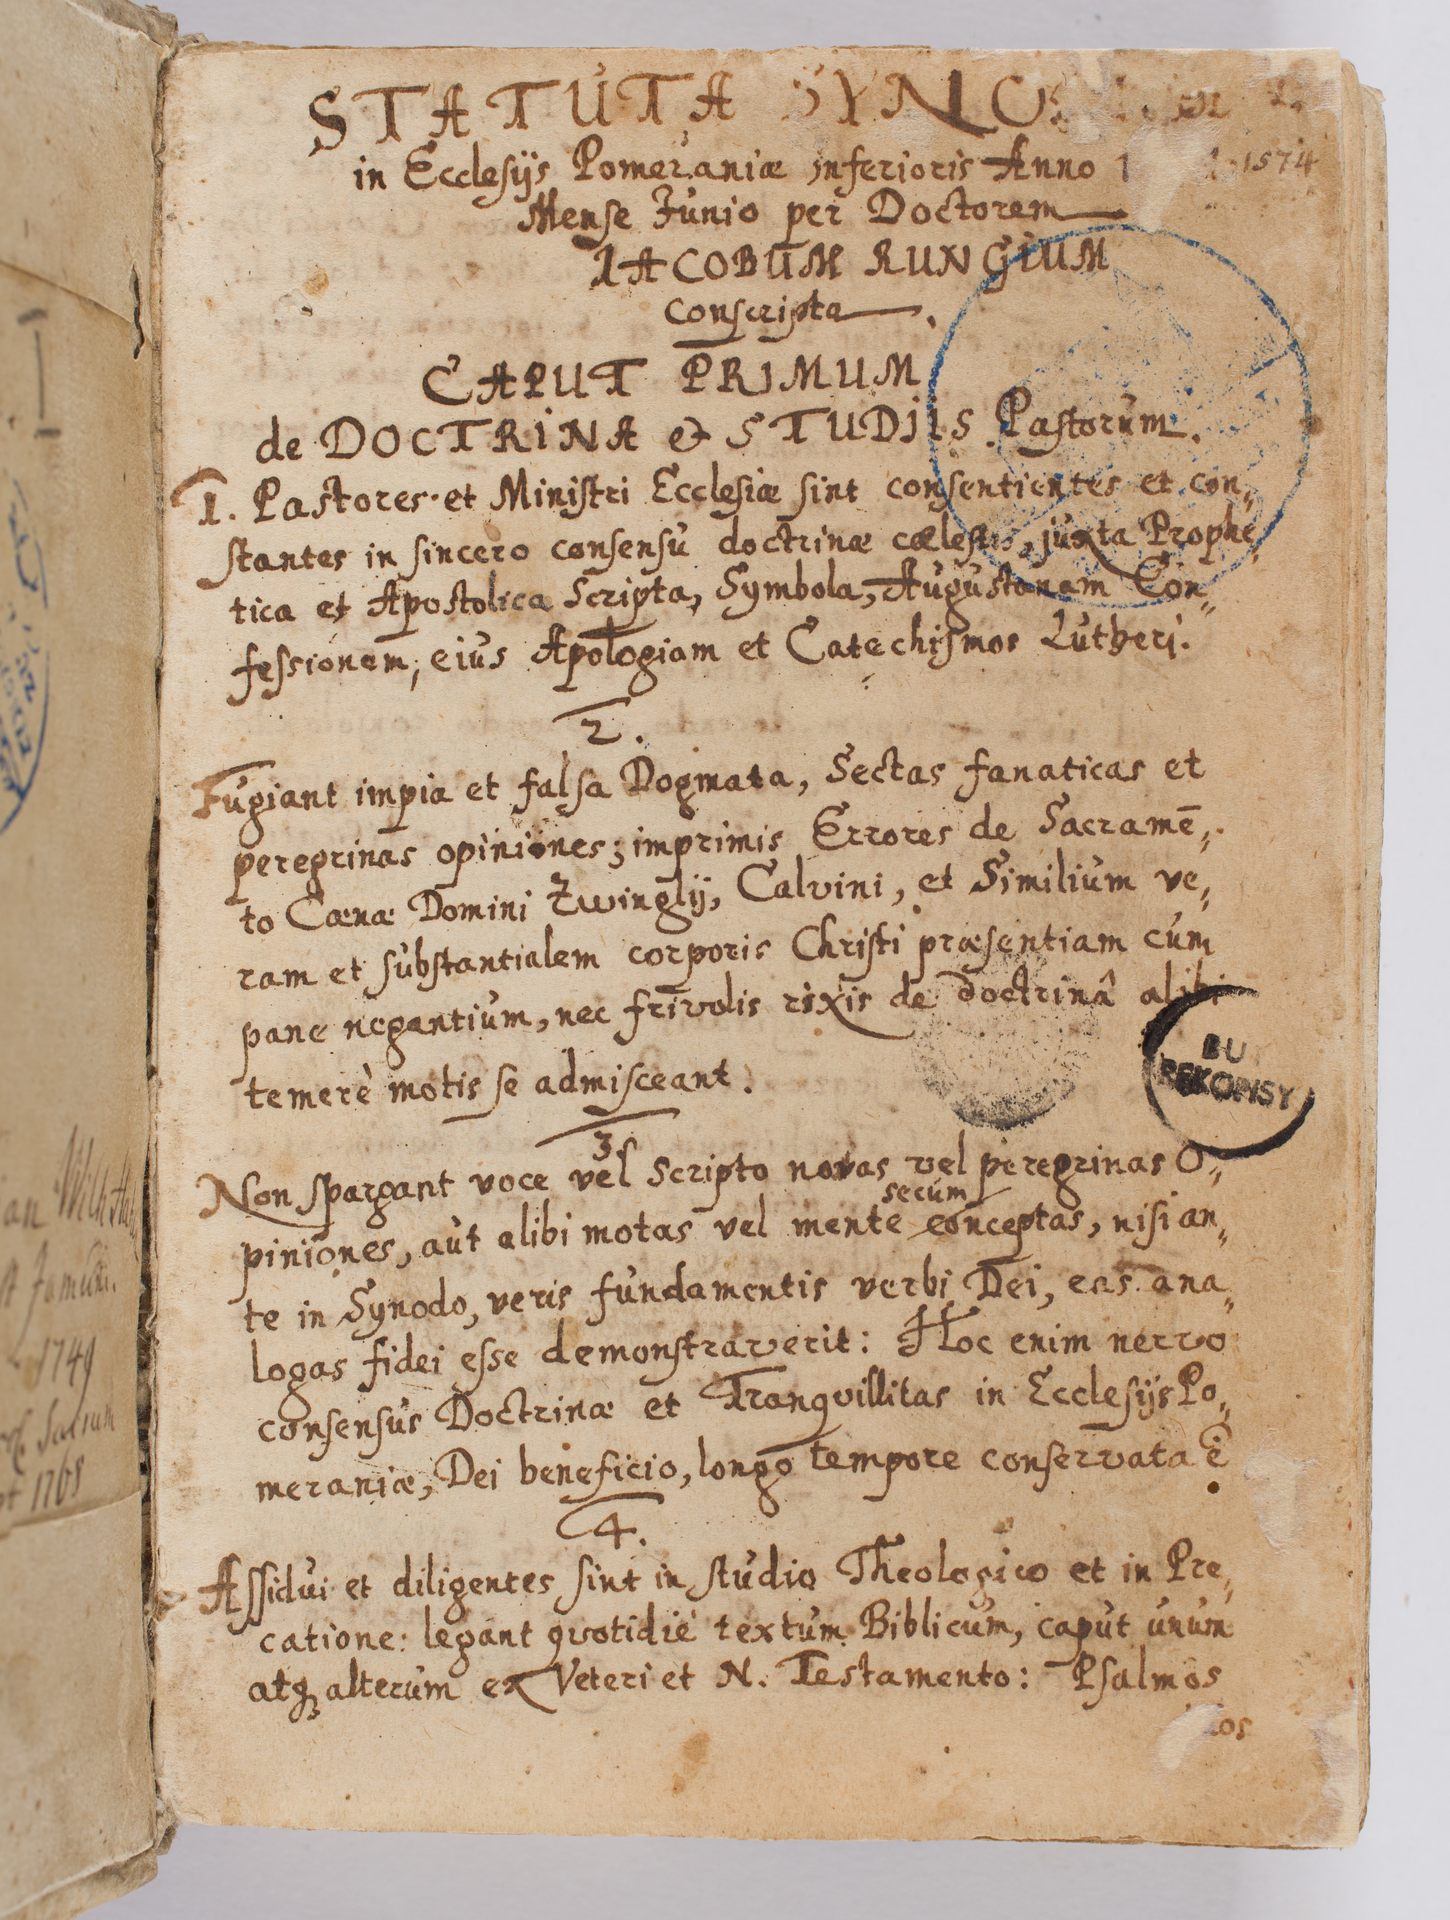 STATUTA
in Ecclesijs Pomeraniæ inferioris Anno 1574
Mense Junio per Doctorem
IACOBUM RUNGIUM
conscripta.
CAPUT PRIMUM
de DOCTRINA & STUDIIS Pastorum.
1. Pastores et Ministri Ecclesiæ sint consentientes et con,,
stantes in sincero consensu doctrinæ cælestis, juxta Prophe,,
tica et Apostolica Scripta, Symbola, Augustanam Con,,
fessionem, eius Apologiam et Catechismos Lutheri.
2.
Fugiant impia et falsa Dogmata, Sectas fanaticas et
peregrinas opiniones; imprimis Errores de Sacramē,,
to Cœnæ Domini Zwinglij, Calvini, et Similium ve,,
ram et substantialem corporis Christi præsentiam cum
pane negantium, nec frivolis rixis de doctrinâ alibi
temerè motis se admisceant.
BU
RĘKOPISY
3.
Non spargant voce vel scripto novas vel peregrinas O,,
secum
piniones, aut alibi motas vel mente conceptas, nisi an,,
te in Synodo, veris fundamentis verbi Dei, eas ana,,
logas fidei esse demonstraverit: Hoc enim nervo
consensus Doctrinæ et Tranqvillitas in Ecclesijs Po,,
meraniæ, Dei beneficio, longo tempore conservata ē.
4.
Assidui et diligentes sint in studio Theologico et in Pre,,
catione: legant qvotidiè textum Biblicum, caput unum
atq; alterum ex Veteri et N. Testamento: Psalmos
1749
1765